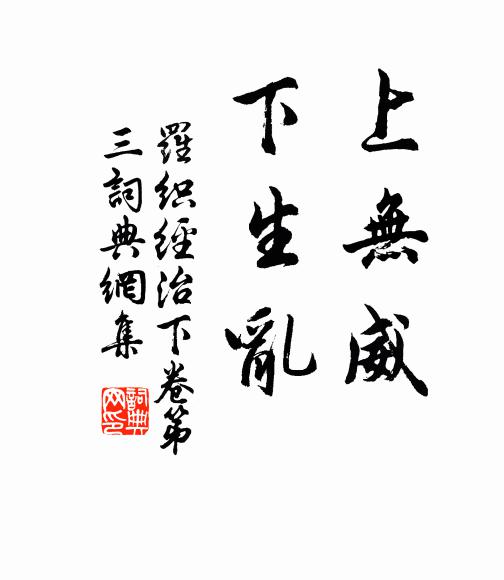 上無威
下生亂
羅織經治下卷第
三詞典網集
詞典
网印